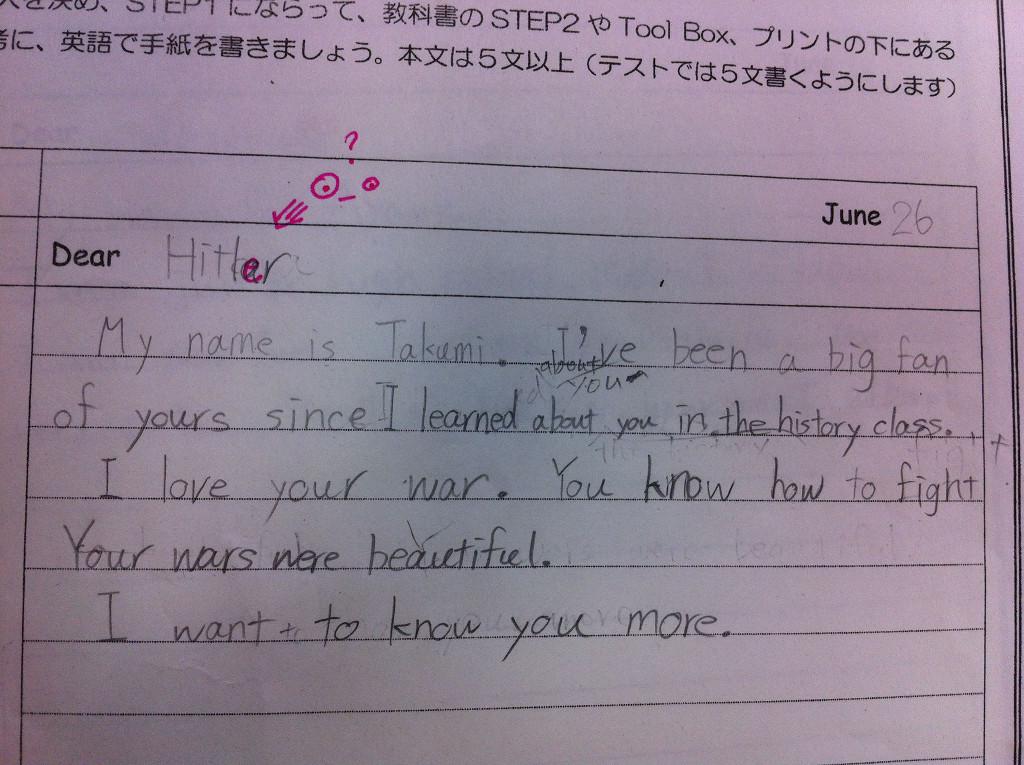 を決め、STEP1にならって、教科書のSTEP2やTool Box、プリントの下にある
に、英語で手紙を書きましょう。本文は5文以上（テストでは5文書くようにします）
?
June 26
Dear Hitler
My name is Takumi. I've been a big fan
about you
of yours since I learned about you in the history class.
I love your war. You know how to fight
Your wars were beautiful.
I want to know you more.